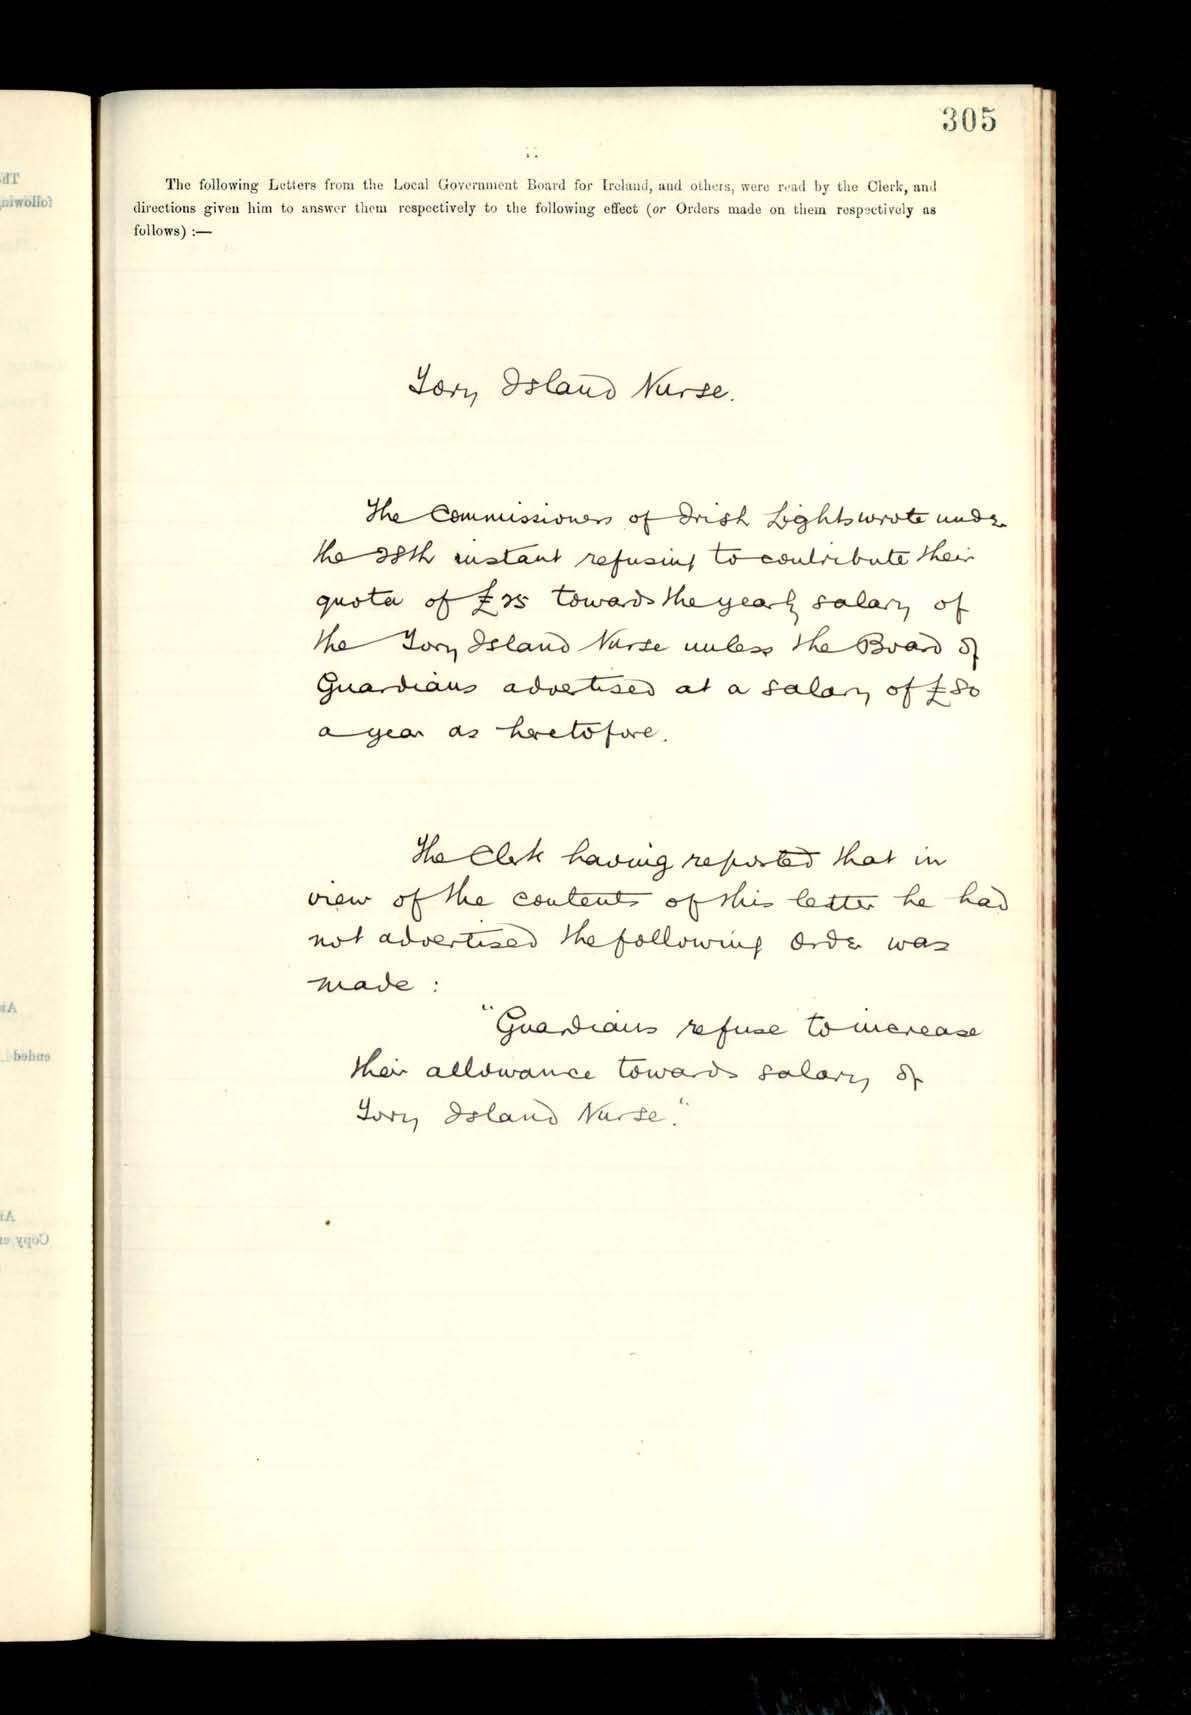 305
The following Letters from the Local Government Board for Ireland, and others, were read by the Clerk, and
directions given him to answer them respectively to the following effect (or Orders made on them respectively as
follows) :—
Tory Island Nurse.
The Commissioners of Irish Lights wrote under
the 28th instant refusing to contribute their
quota of £25 towards the yearly salary of
the Tory Island Nurse unless the Board of
Guardians advertised at a salary of £80
a year as heretofore.
The Clerk having reported that in
view of the contents of this letter he had
not advertised the following order was
made :
"Guardians refuse to increase
their allowance towards salary of
Tory Island Nurse."